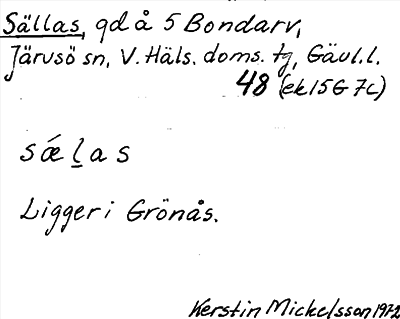 Sällas, gd å 5 Bondarv,
Järvsö sn, V. Häls. doms. tg, Gävl. l.
48 (ek 15G 7c)
sǽl̠as
Ligger i Grönås.
Kerstin Mickelsson 1972